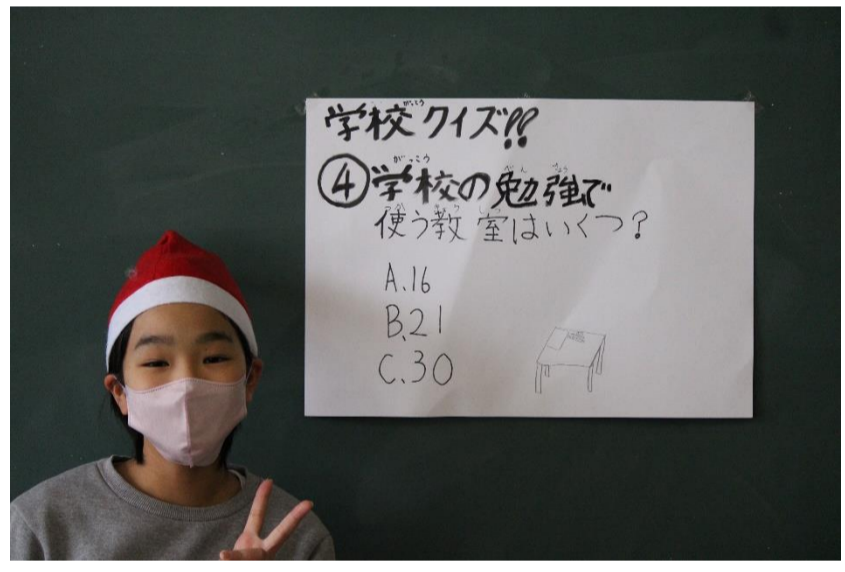 学校クイズ!!
④学校の勉強で
使う教室はいくつ?
A.16
B.21
C.30